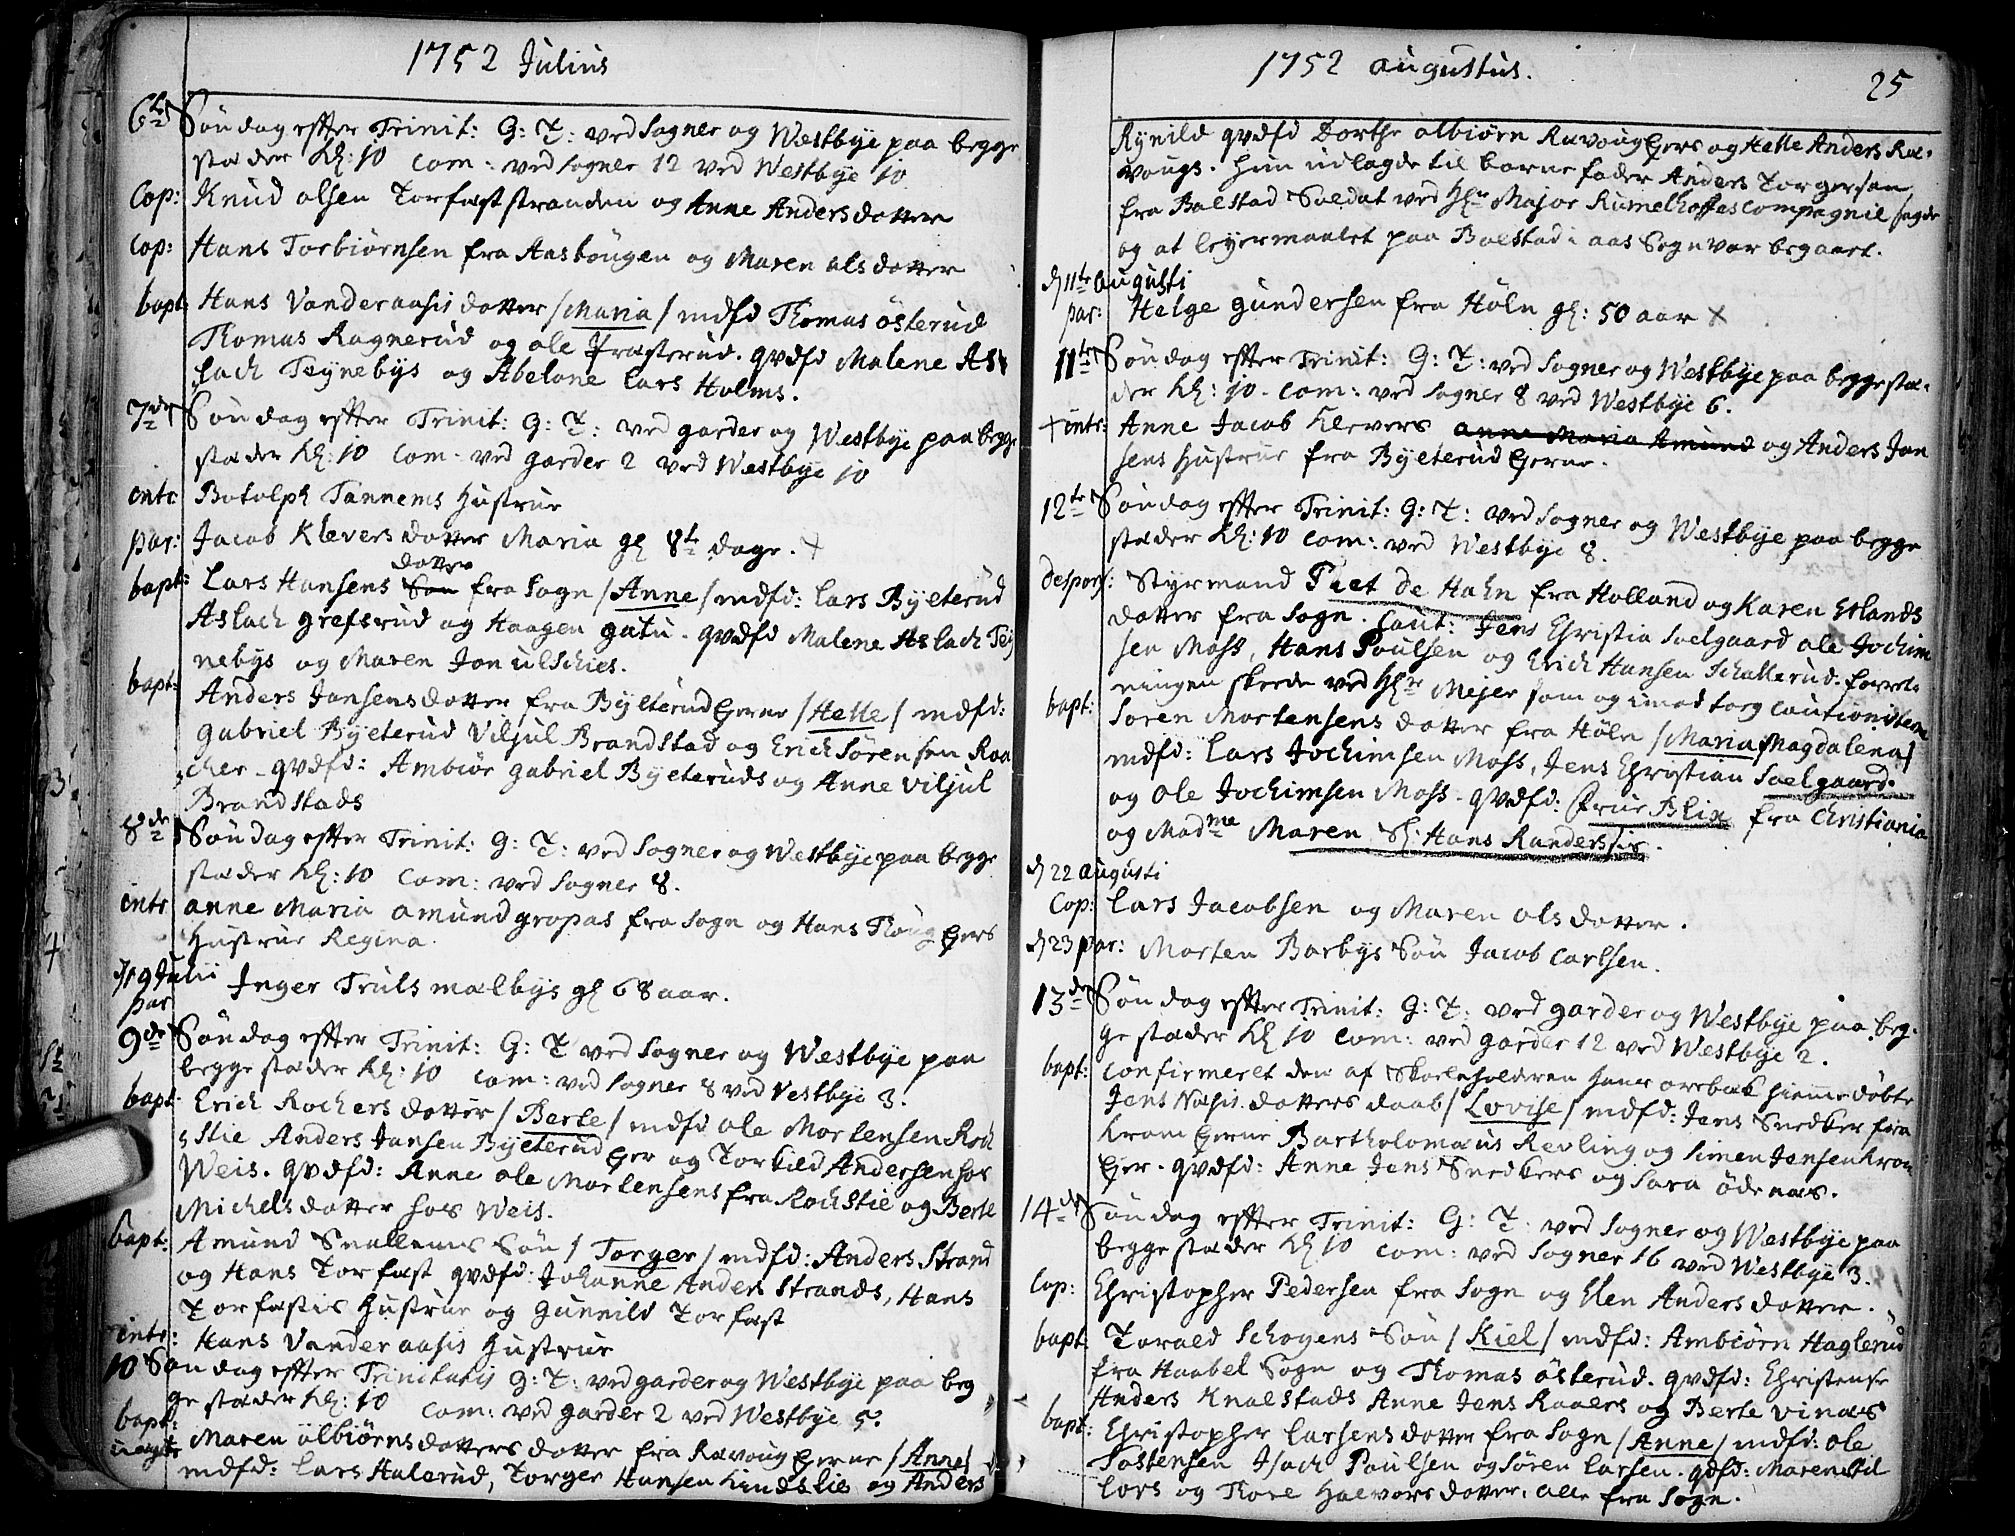 1752 Julius
6te Søndag effter Trinit: G: T: ved Sogner og Westbye paa begge
stæder Kl: 10 Com: ved Sogner 12 ved Westbye 10
Cop: Knud olsen Torfæststranden og Anne Andersdotter
cop: Hans Torbiørnsen fra Aasbougen og Maren olsdotter
bapt: Hans Vanderaasis dotter /Maria/ mdfd Thomas østerud
Thomas Ragnerud og ole Træsterud. qvdfd Malene As
lach Teynebys og Abelone Lars Holms.
7de Søndag effter Trinit: G: T: ved garder og Westbye paa begge
stæder Kl: 10 Com: ved garder 2 ved Westbye 10
intr Botolph Tannems Hustrue
par: Jacob Klevers dotter Maria gl 8te dage. +
dotter
bapt: Lars Hansens Søn fra Sogn /Anne/ mdfd: Lars Byeterud
Aslach grefsrud og Haagen gatu. qvdfd Malene Aslach Tey
nebys og Maren Jon ulschies.
bapt: Anders Jansens dotter fra Byeterud Eierne /Helle/ mdfd:
gabriel Byeterud Viljul Brandstad og Erich Sørensen Roa
cher. qvdfd: Ambiør gabriel Byeteruds og Anne viljul
Brandstads
8de Søndag effter Trinit: G: T: ved Sogner og Westbye paa begge
stæder Kl: 10 Com: ved Sogner 8.
intr anne Maria amund gropas fra Sogn og Hans Houg Eiers
Hustrue Regina.
d 19 Julii
par Inger Truls mælbys gl 68 aar.
9de Søndag effter Trinit: G: T ved Sogner og Westbye paa
begge stæder Kl: 10 Com: ved Sogner 8 ved Vestbye 3.
bapt: Erich Rochers dotter /Berte/ mdfd ole Mortensen Roch
Stie Anders Jansen Byeterud Eier og Torkild Andersen hos
Weis. qvdfd: Anne ole Mortensens fra Rochstie og Berte
Michelsdotter hos Weis.
bapt: Amund Snallems Søn /Torger/ mdfd: Anders Strand
og Hans Torfæst qvdfd: Johanne Anders Strands, Hans
Torfæstis Hustrue og gunnild Torfæst
intr: Hans Vanderaasis Hustrue
10 Søndag effter Trinitatis G: T: ved garder og Westbye paa beg
ge stæder Kl: 10 Com: ved garder 2 ved Westbye 5.
bapt: Maren olbiørnsdotters dotter fra Ravoug Eierne /Anne/
uægte mdfd: Lars Halerud, Torger Hansen Kindslie og Anders
1752 augustus. 25
Rynild qvdfd Dorthe olbiørn Ravoug Eiers og Helle Anders Ra-
vougs. Hun udlagde til barnefader Anders Torgersen
fra Bolstad Soldat ved Hr Major Rumelhoffes Compagnie sagde
og at leyermaalet paa Bolstad i aas Sogn var begaaet.
d 11te augusti
par: Helge gundersen fra Høln gl: 50 aar +
11te Søndag effter Trinit: G: T: ved Sogner og Westbye paa begge stæ-
der Kl: 10. Com: ved Sogner 8 ved Westbye 6.
+ intr: Anne Jacob Klevers anne Maria Amund og Anders Jan
sens Hustrue fra Byeterud Eierne.
12te Søndag effter Trinit: G: T: ved Sogner og Westbye paa begge
stæder Kl: 10 Com: ved Westbye 8.
despons: Styrmand Piet de Hahn fra Holland og Karen Erlands
dotter fra Sogn. Caut: Jens Christia Soelgaard ole Jochim
sen Moss, Hans Poulsen og Erich Hansen Schallerud. forret-
ningen skeede ved Hr Mejer som og imod tog Cautionisterne
bapt: Søren Mortensens dotter fra Høln /Maria Magdalena/
mdfd: Lars Jochimsen Moss, Jens Christian Soelgaard.
og Ole Jochimsen Moss. qvdfd: Frue Blix fra Christiania
og Madme Maren Sl: Hans Randerssis.
d 22 augusti
Cop: Lars Jacobsen og Maren olsdotter.
d 23 par: Morten Barbys Søn Jacob Carlsen.
13de Søndag effter Trinit: G: T: ved garder og Westbye paa beg-
ge stæder Kl 10 Com: ved garder 12 ved Westbye 2.
bapt: Confirmeret den af Skoleholderen Hans orebæk hiemme døbte
Jens Næsis dotters daab /Lovise/ mdfd: Jens Snedker fra
Kron Eierne Bartholomæus Revling og Simen Jensen Kron
Eier. qvdfd: Anne Jens Snedkers og Sara ødenæs.
14de Søndag effter Trinit: G: T: ved Sogner og Westbye paa
begge stæder Kl 10 Com: ved Sogner 16 ved Westbye 3.
Cop: Christopher Pedersen fra Sogn og Elen Andersdotter.
bapt: Torald Schogens Søn /Kiel/ mdfd: Ambiørn Haglerud
fra Haabel Sogn og Thomas østerud. qvdfd: Christense
Anders Knalstads Anne Jens Raaers og Berte vinæs
bapt: Christopher Larsens dotter fra Sogn /Anne/ mdfd: Ole
Tostensen Isach Poulsen og Søren Larsen. qdfd: Maren Nil
Lars og Thore Halvorsdotter. alle fra Sogn.